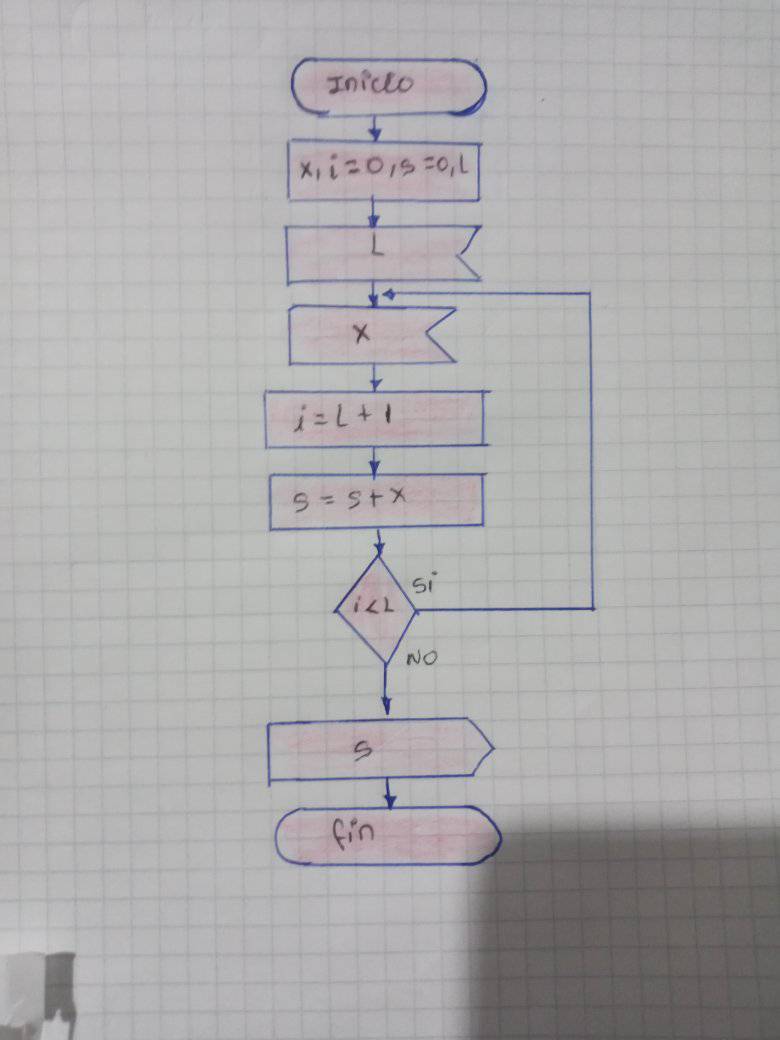 Inicio
x, i=0, s=0, L
L
x
i = L + 1
s = s + x
i < L
Si
NO
s
fin